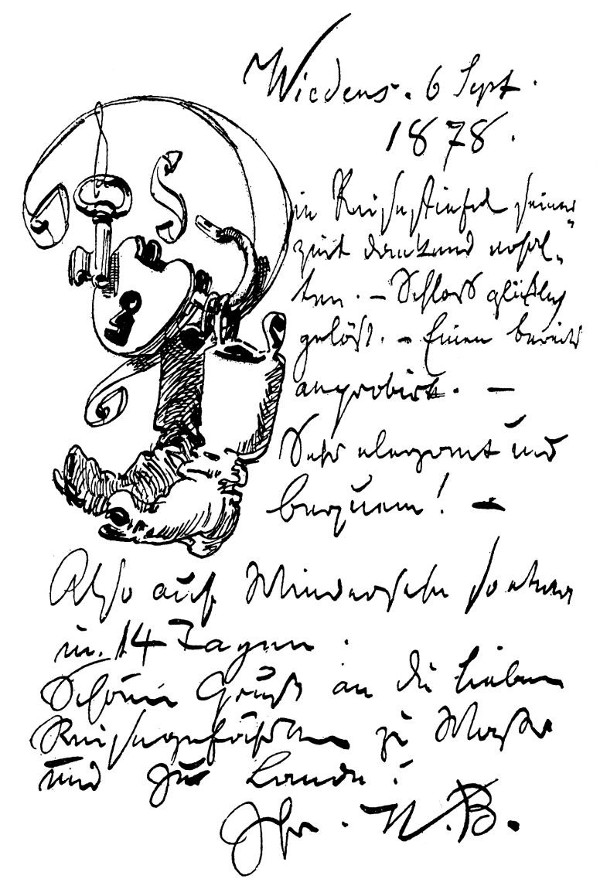 Wiedens. 6 Sept.
1878.
Die Reisestiefel seiner
Zeit dankend erhal-
ten. – Schloß glücklich
gelöst. – Einen bereits
anprobirt. –
Sehr elegant und
bequem! –
Also auf Wiedersehn so etwa
in 14 Tagen.
Schönen Gruß an die lieben
Reisegefährten zu Wasser
und zu Lande!
Ihr. W. B.